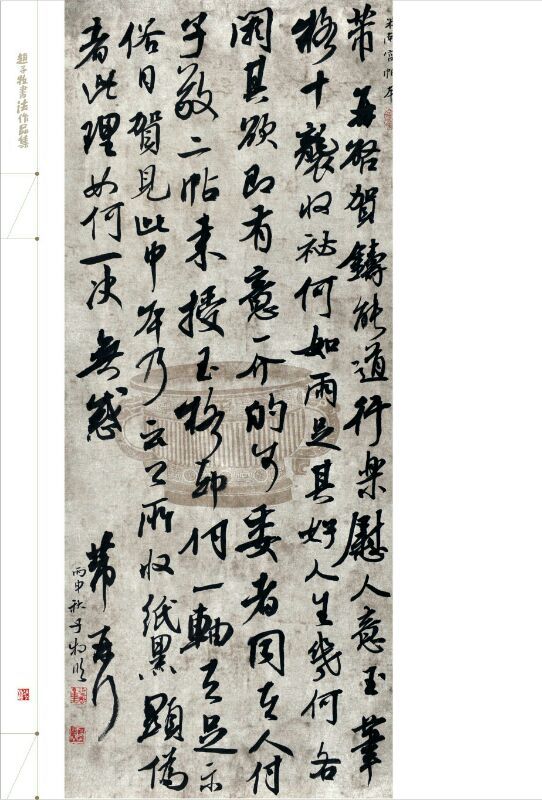 米南宮帖
芾再啓賀鑄能道行樂慰人意玉筆
格十襲收祕何如兩足其好人生幾何各
閼其欲即有意一介的可委者同去人付
子敬二帖来授玉格却付一軸去足示
俗目賀見此中本乃云公所收紙黑顯偽
者此理如何一決無惑
芾再行
丙申秋子牧臨
趙子牧書法作品集